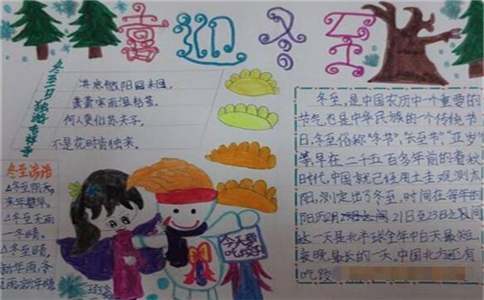 喜迎冬至
冬至日独游吉祥寺
井底微阳回未回,
萧萧寒雨湿枯荄。
何人更似苏夫子,
不是花时肯独来。
冬至谚语
冬至
冬至天雨
一冬晴,
冬至晴,
今天要
吃饺子
冬至,是中国农历中一个重要的
节气,也是中华民族的一个传统节
日,冬至俗称"冬节"、"长至节"、"亚岁"
等,早在二千五百多年前的春秋
时代,中国就已经用土圭观测太
阳,测定出了冬至,时间在每年的
阳历12月21日至23日之间
这一天是北半球全年中白天最短,
夜晚最长的一天,中国北方还有
吃饺